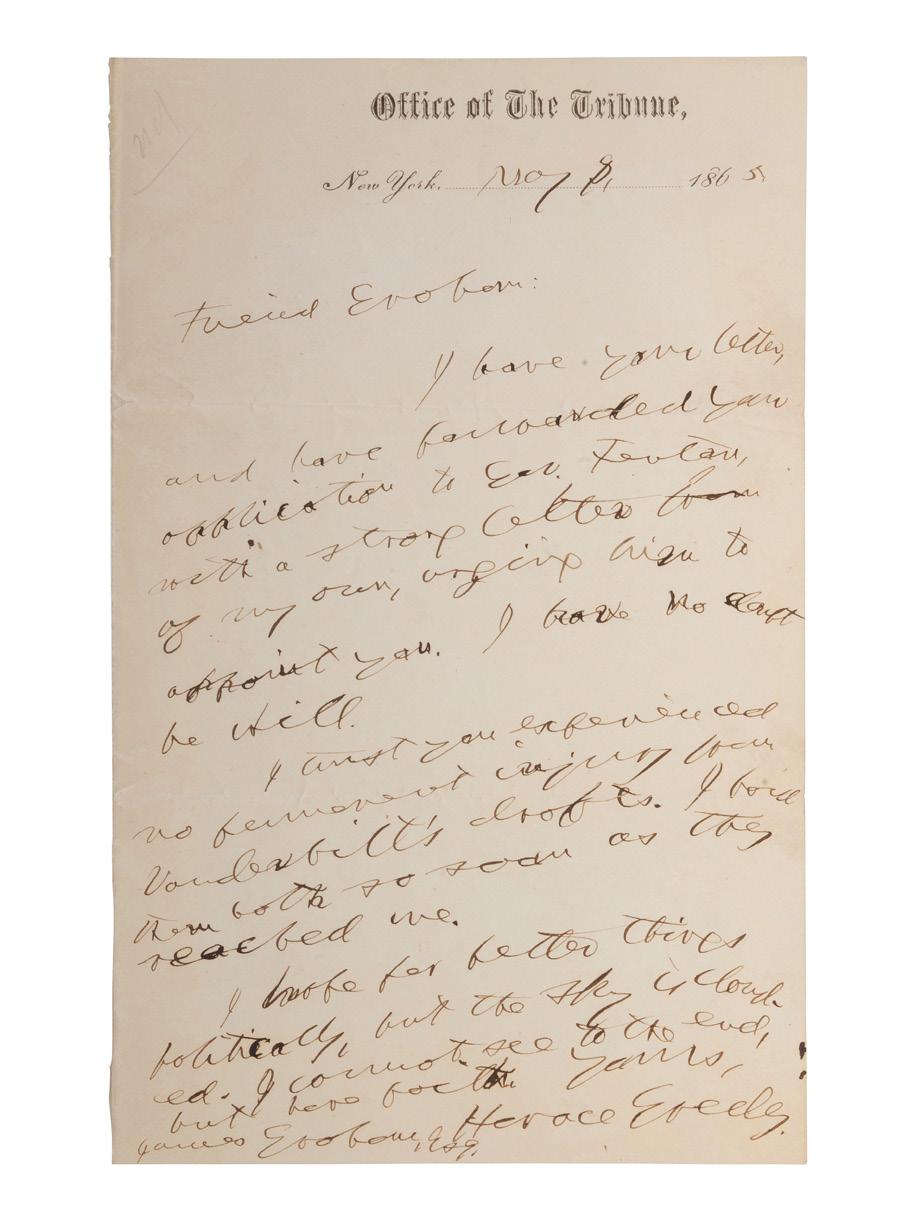 Office of The Tribune,
New York. May 8, 1865.
Friend Graham:
I have your letter,
and have forwarded your
application to Gov. Fenton,
with a strong letter from
of my own, urging him to
appoint you. I have no doubt
he will.
I trust you experienced
no permanent injury from
Vanderbilt's drafts. I paid
them both so soon as they
reached me.
I hope for better things
politically, but the sky is cloud-
ed. I cannot see to the end,
but have faith.
Yours,
Horace Greeley.
James Graham, Esq.